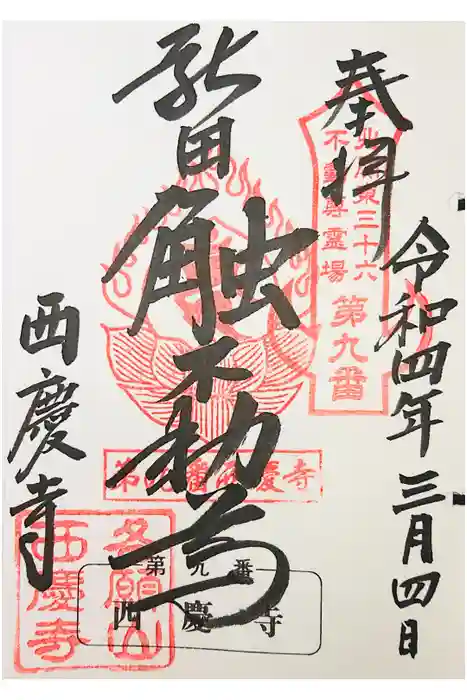 奉拝
令和四年三月四日
北関東三十六
不動尊霊場
第九番
新田
触不動尊
第九番西慶寺
西慶寺
願山
西慶寺
第九番
西慶寺